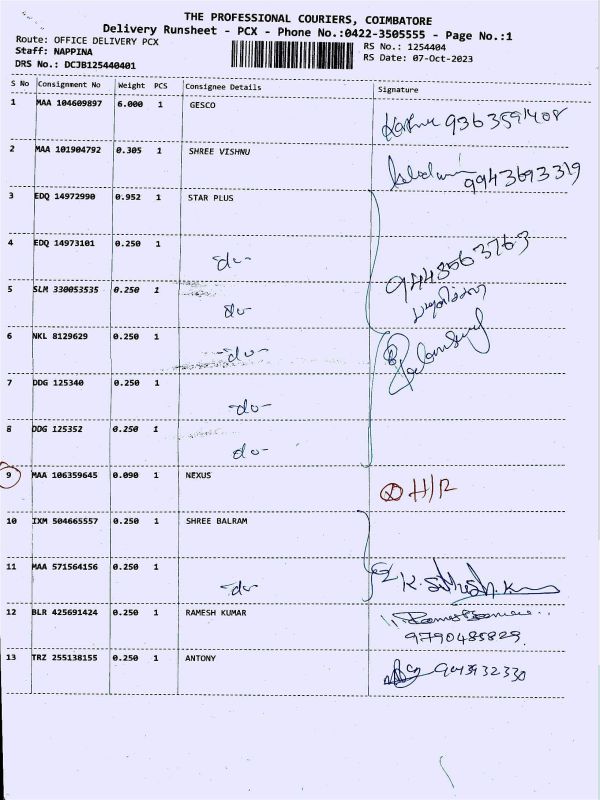 THE PROFESSIONAL COURIERS, COIMBATORE
Delivery Runsheet - PCX - Phone No.:0422-3505555 - Page No.:1
Route: OFFICE DELIVERY PCX
RS No.: 1254404
Staff: NAPPINA
RS Date: 07-Oct-2023
DRS No.: DCJB125440401
S No Consignment No Weight PCS Consignee Details Signature
1 MAA 104609897 6.000 1 GESCO 9363591408
2 MAA 101904792 0.305 1 SHREE VISHNU 9943693319
3 EDQ 14972990 0.952 1 STAR PLUS
4 EDQ 14973101 0.250 1 -do- 9443563763
5 SLM 330053535 0.250 1 -do-
6 NKL 8129629 0.250 1 -do-
7 DDG 125340 0.250 1 -do-
8 DDG 125352 0.250 1 -do-
9 MAA 106359645 0.090 1 NEXUS H/R
10 IXM 504665557 0.250 1 SHREE BALRAM
11 MAA 571564156 0.250 1 -do-
12 BLR 425691424 0.250 1 RAMESH KUMAR
9790485829
13 TRZ 255138155 0.250 1 ANTONY